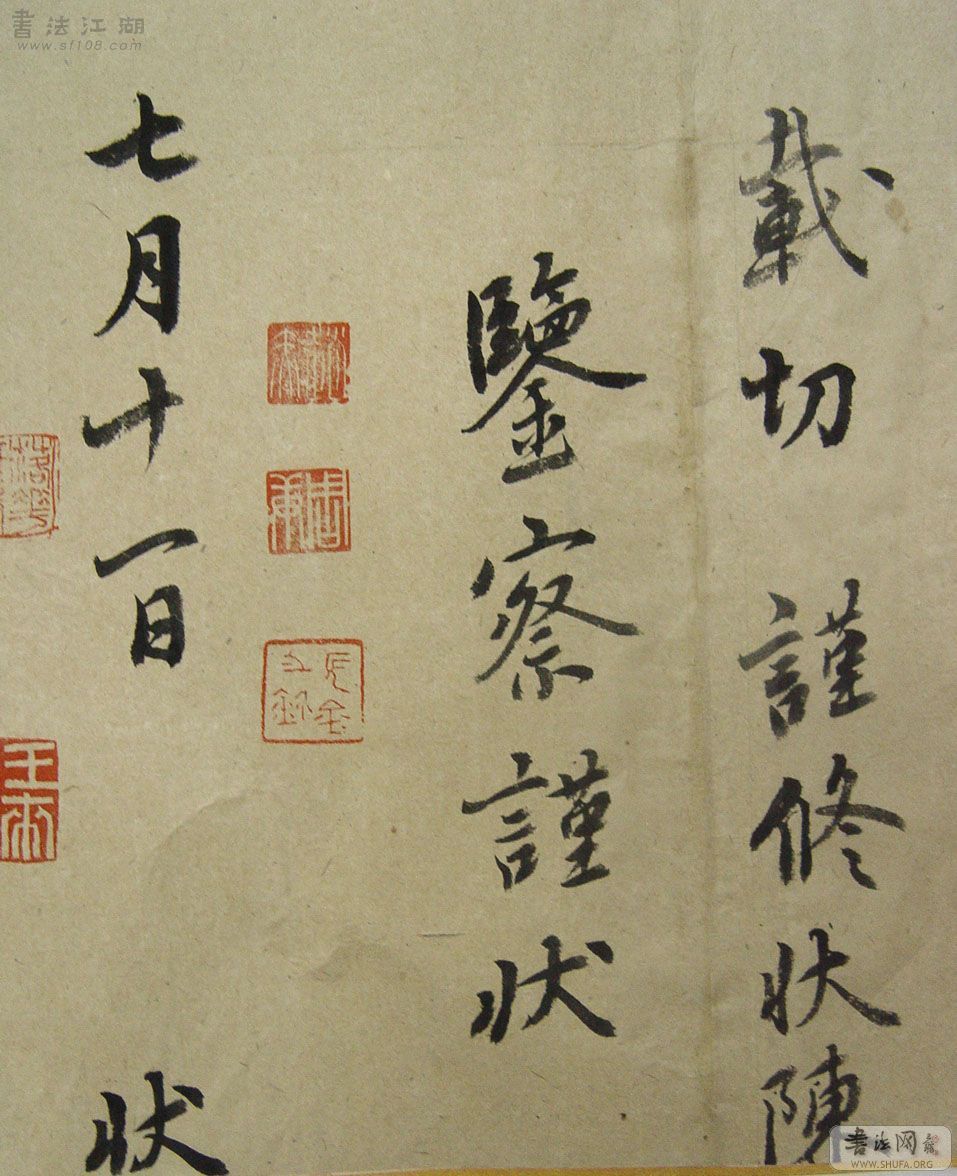 載切 謹修狀陳
鑒察謹狀
七月十一日 狀
書法江湖
www.sf108.com
書法网
WWW.SHUFA.ORG